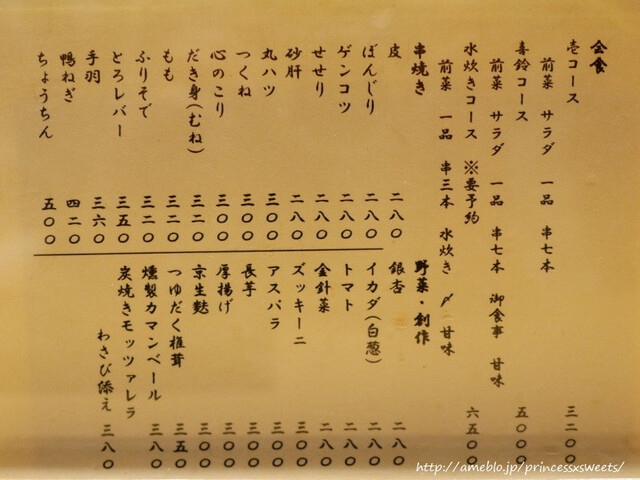 会食
壱コース 三二〇〇
前菜 サラダ 一品 串七本
喜鈴コース 五〇〇〇
前菜 サラダ 一品 串七本 御食事 甘味
水炊きコース ※要予約 六五〇〇
前菜 一品 串三本 水炊き 〆 甘味
串焼き
皮 二八〇
ぼんじり 二八〇
ゲンコツ 二八〇
せせり 二八〇
砂肝 二八〇
丸ハツ 三〇〇
つくね 三〇〇
心のこり 三〇〇
だき身(むね) 三二〇
もも 三二〇
ふりそで 三二〇
とろレバー 三五〇
手羽 三六〇
鴨ねぎ 四二〇
ちょうちん 五〇〇
野菜・創作
銀杏 二八〇
イカダ(白葱) 二八〇
トマト 二八〇
金針菜 二八〇
ズッキーニ 三〇〇
アスパラ 三〇〇
長芋 三〇〇
厚揚げ 三〇〇
京生麩 三〇〇
つゆだく椎茸 三五〇
燻製カマンベール 三八〇
炭焼きモッツァレラ
わさび添え 三八〇
http://ameblo.jp/princessxsweets/